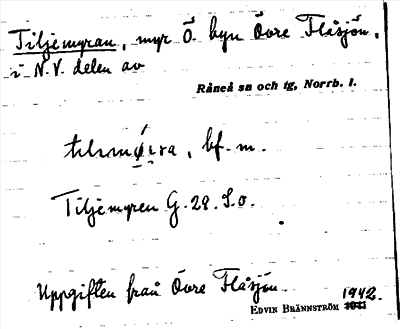 Tiljemyran, myr Ö. byn Övre Flåsjön,
i N.V. delen av
Råneå sn och tg, Norrb. l.
bf. m.
Tiljemyren G. 29. S.o.
Uppgiften från Övre Flåsjön
1942.
EDVIN BRÄNNSTRÖM 1941